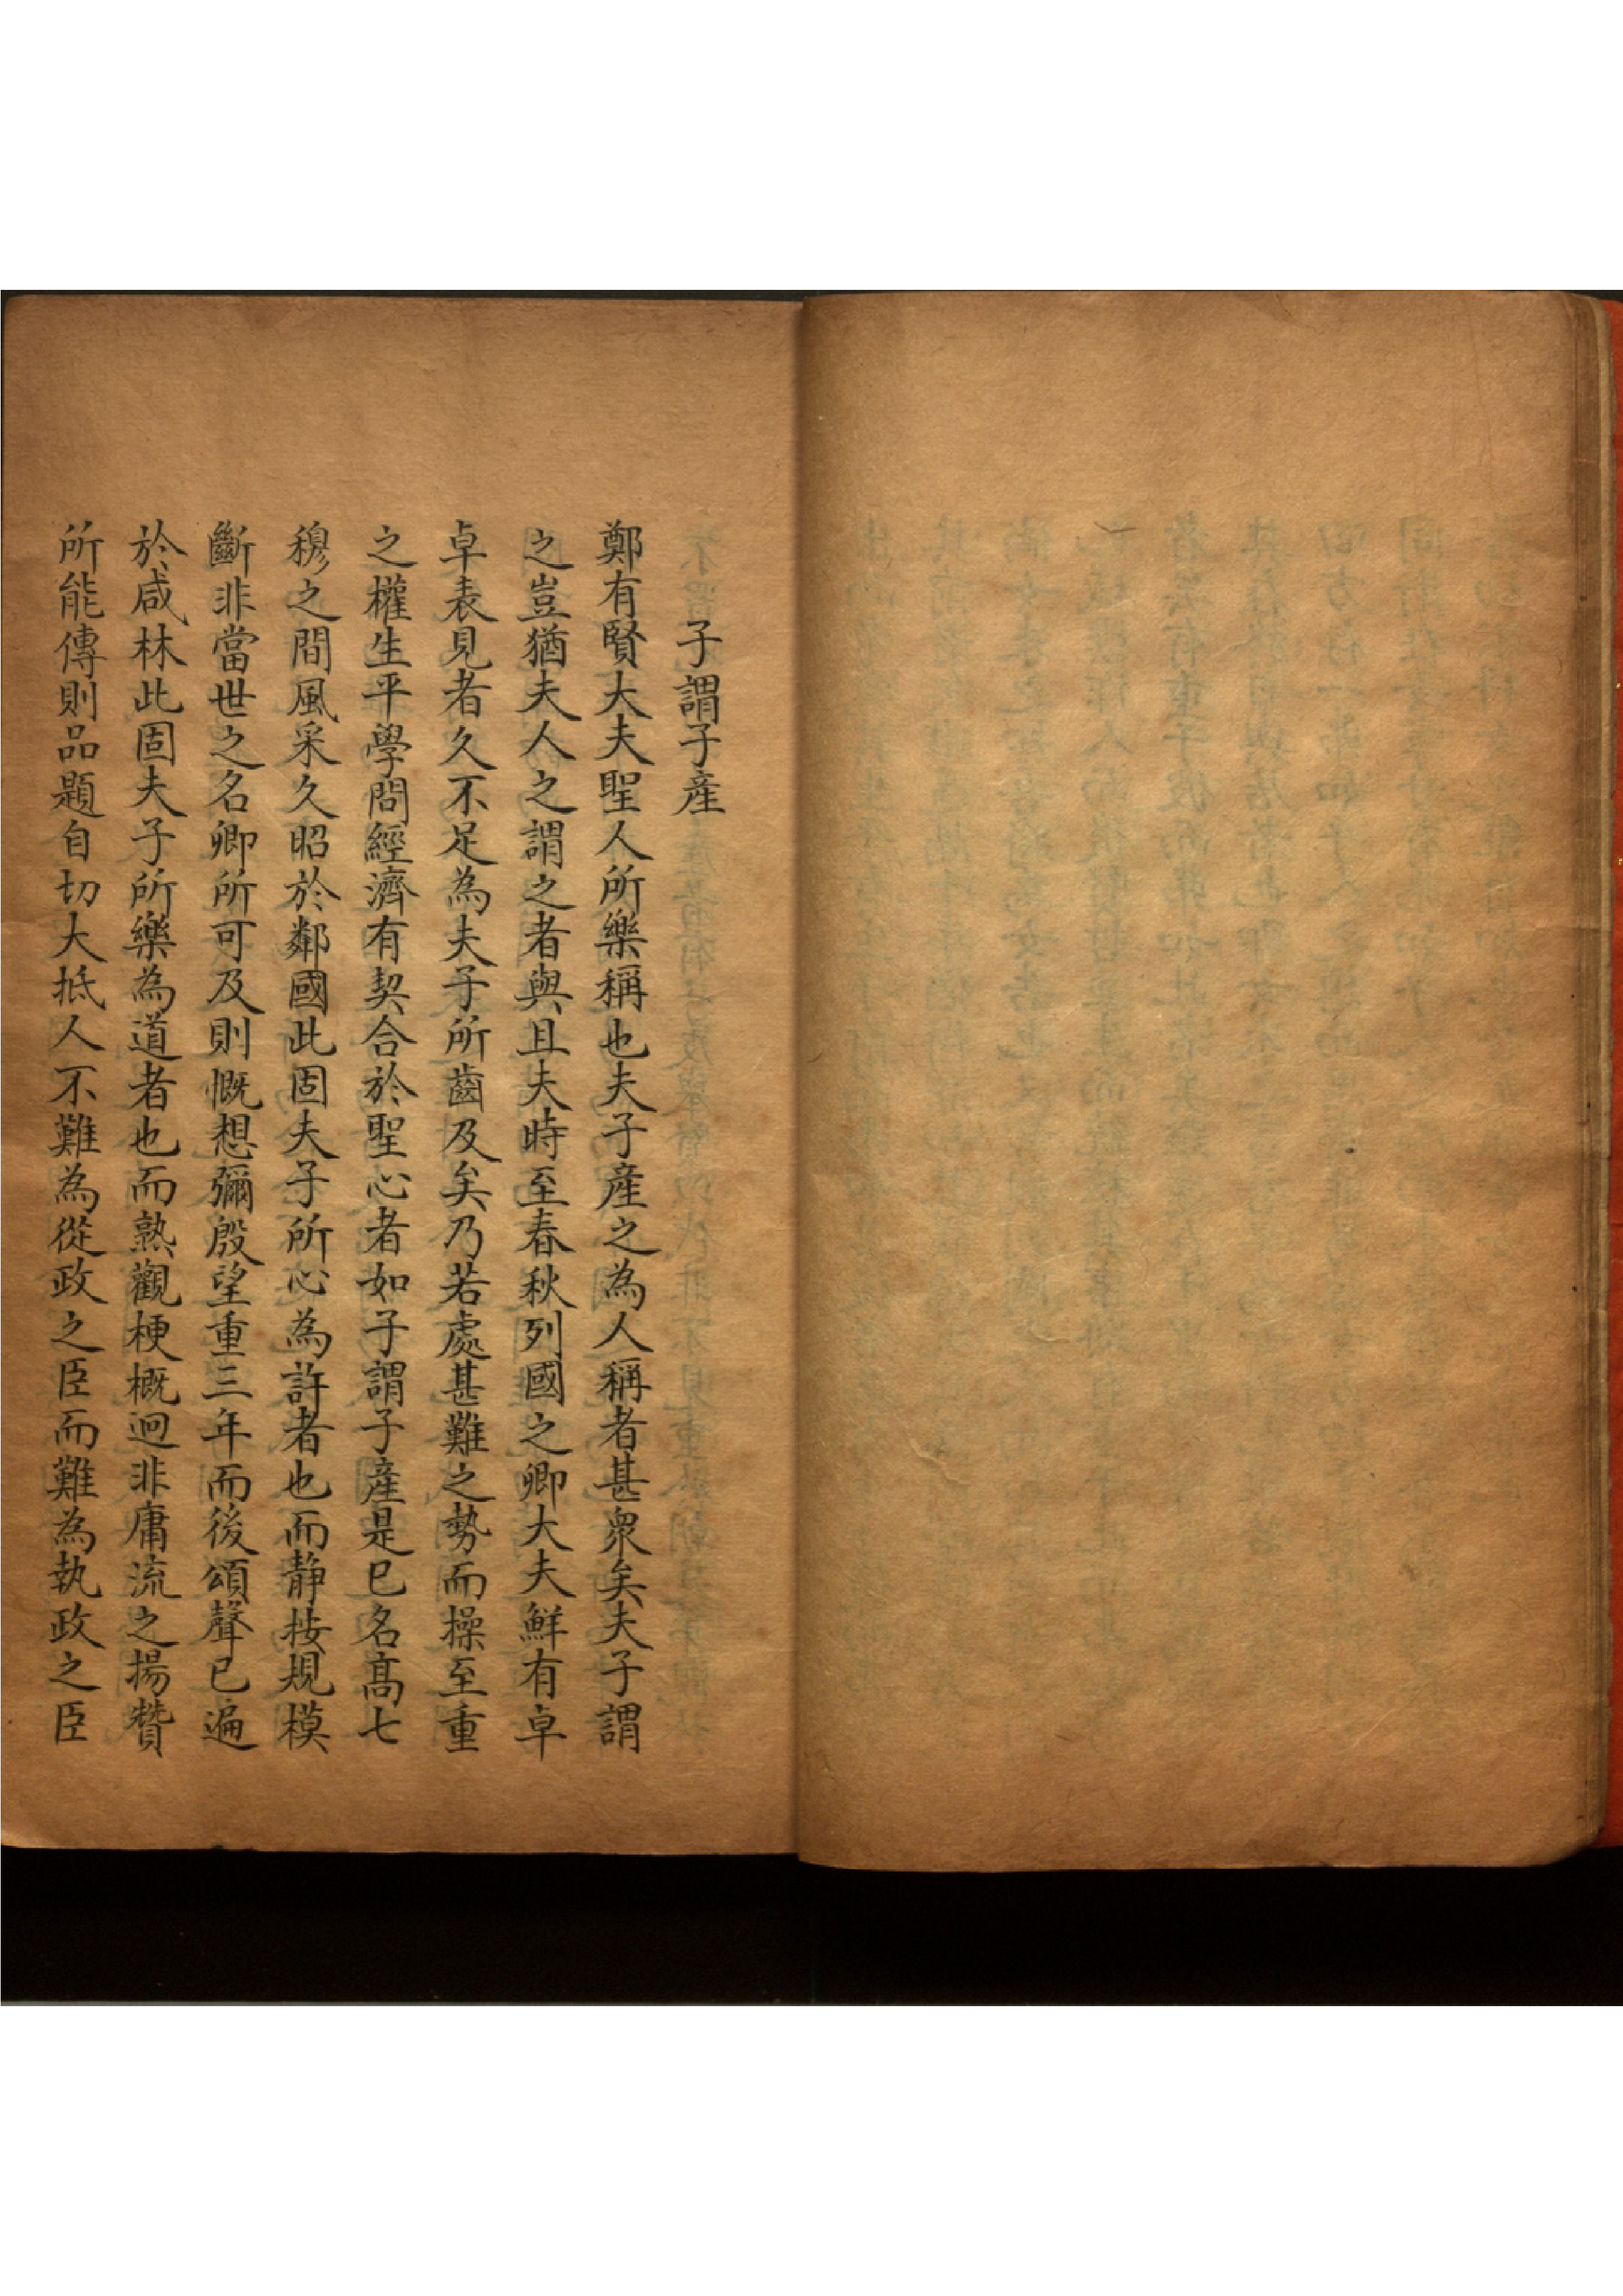 子謂子產
鄭有賢大夫聖人所樂稱也夫子產之為人稱者甚衆矣夫子謂
之豈猶夫人之謂之者與且夫時至春秋列國之卿大夫鮮有卓
卓表見者久不足為夫子所齒及矣乃若處甚難之勢而操至重
之權生平學問經濟有契合於聖心者如子謂子產是已名高七
穆之間風采久昭於鄰國此固夫子所心為許者也而靜按規模
斷非當世之名卿所可及則慨想彌殷望重三年而後頌聲已遍
於咸林此固夫子所樂為道者也而熟觀梗概迥非庸流之揚贊
所能傳則品題自切大抵人不難為從政之臣而難為執政之臣